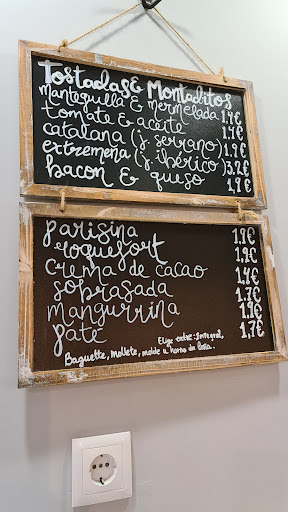 Tostadas & Montaditos
mantequilla & mermelada 1,4€
tomate & aceite 1,4€
catalana (j. serrano) 1,9€
extremeña (j. ibérico) 3,2€
bacon & queso 1,9€
parisina 1,9€
roquefort 1,9€
crema de cacao 1,4€
sobrasada 1,7€
mangurrina 1,9€
paté 1,7€
Elige entre: Integral,
Baguette, mollete, molde u horno de leña..